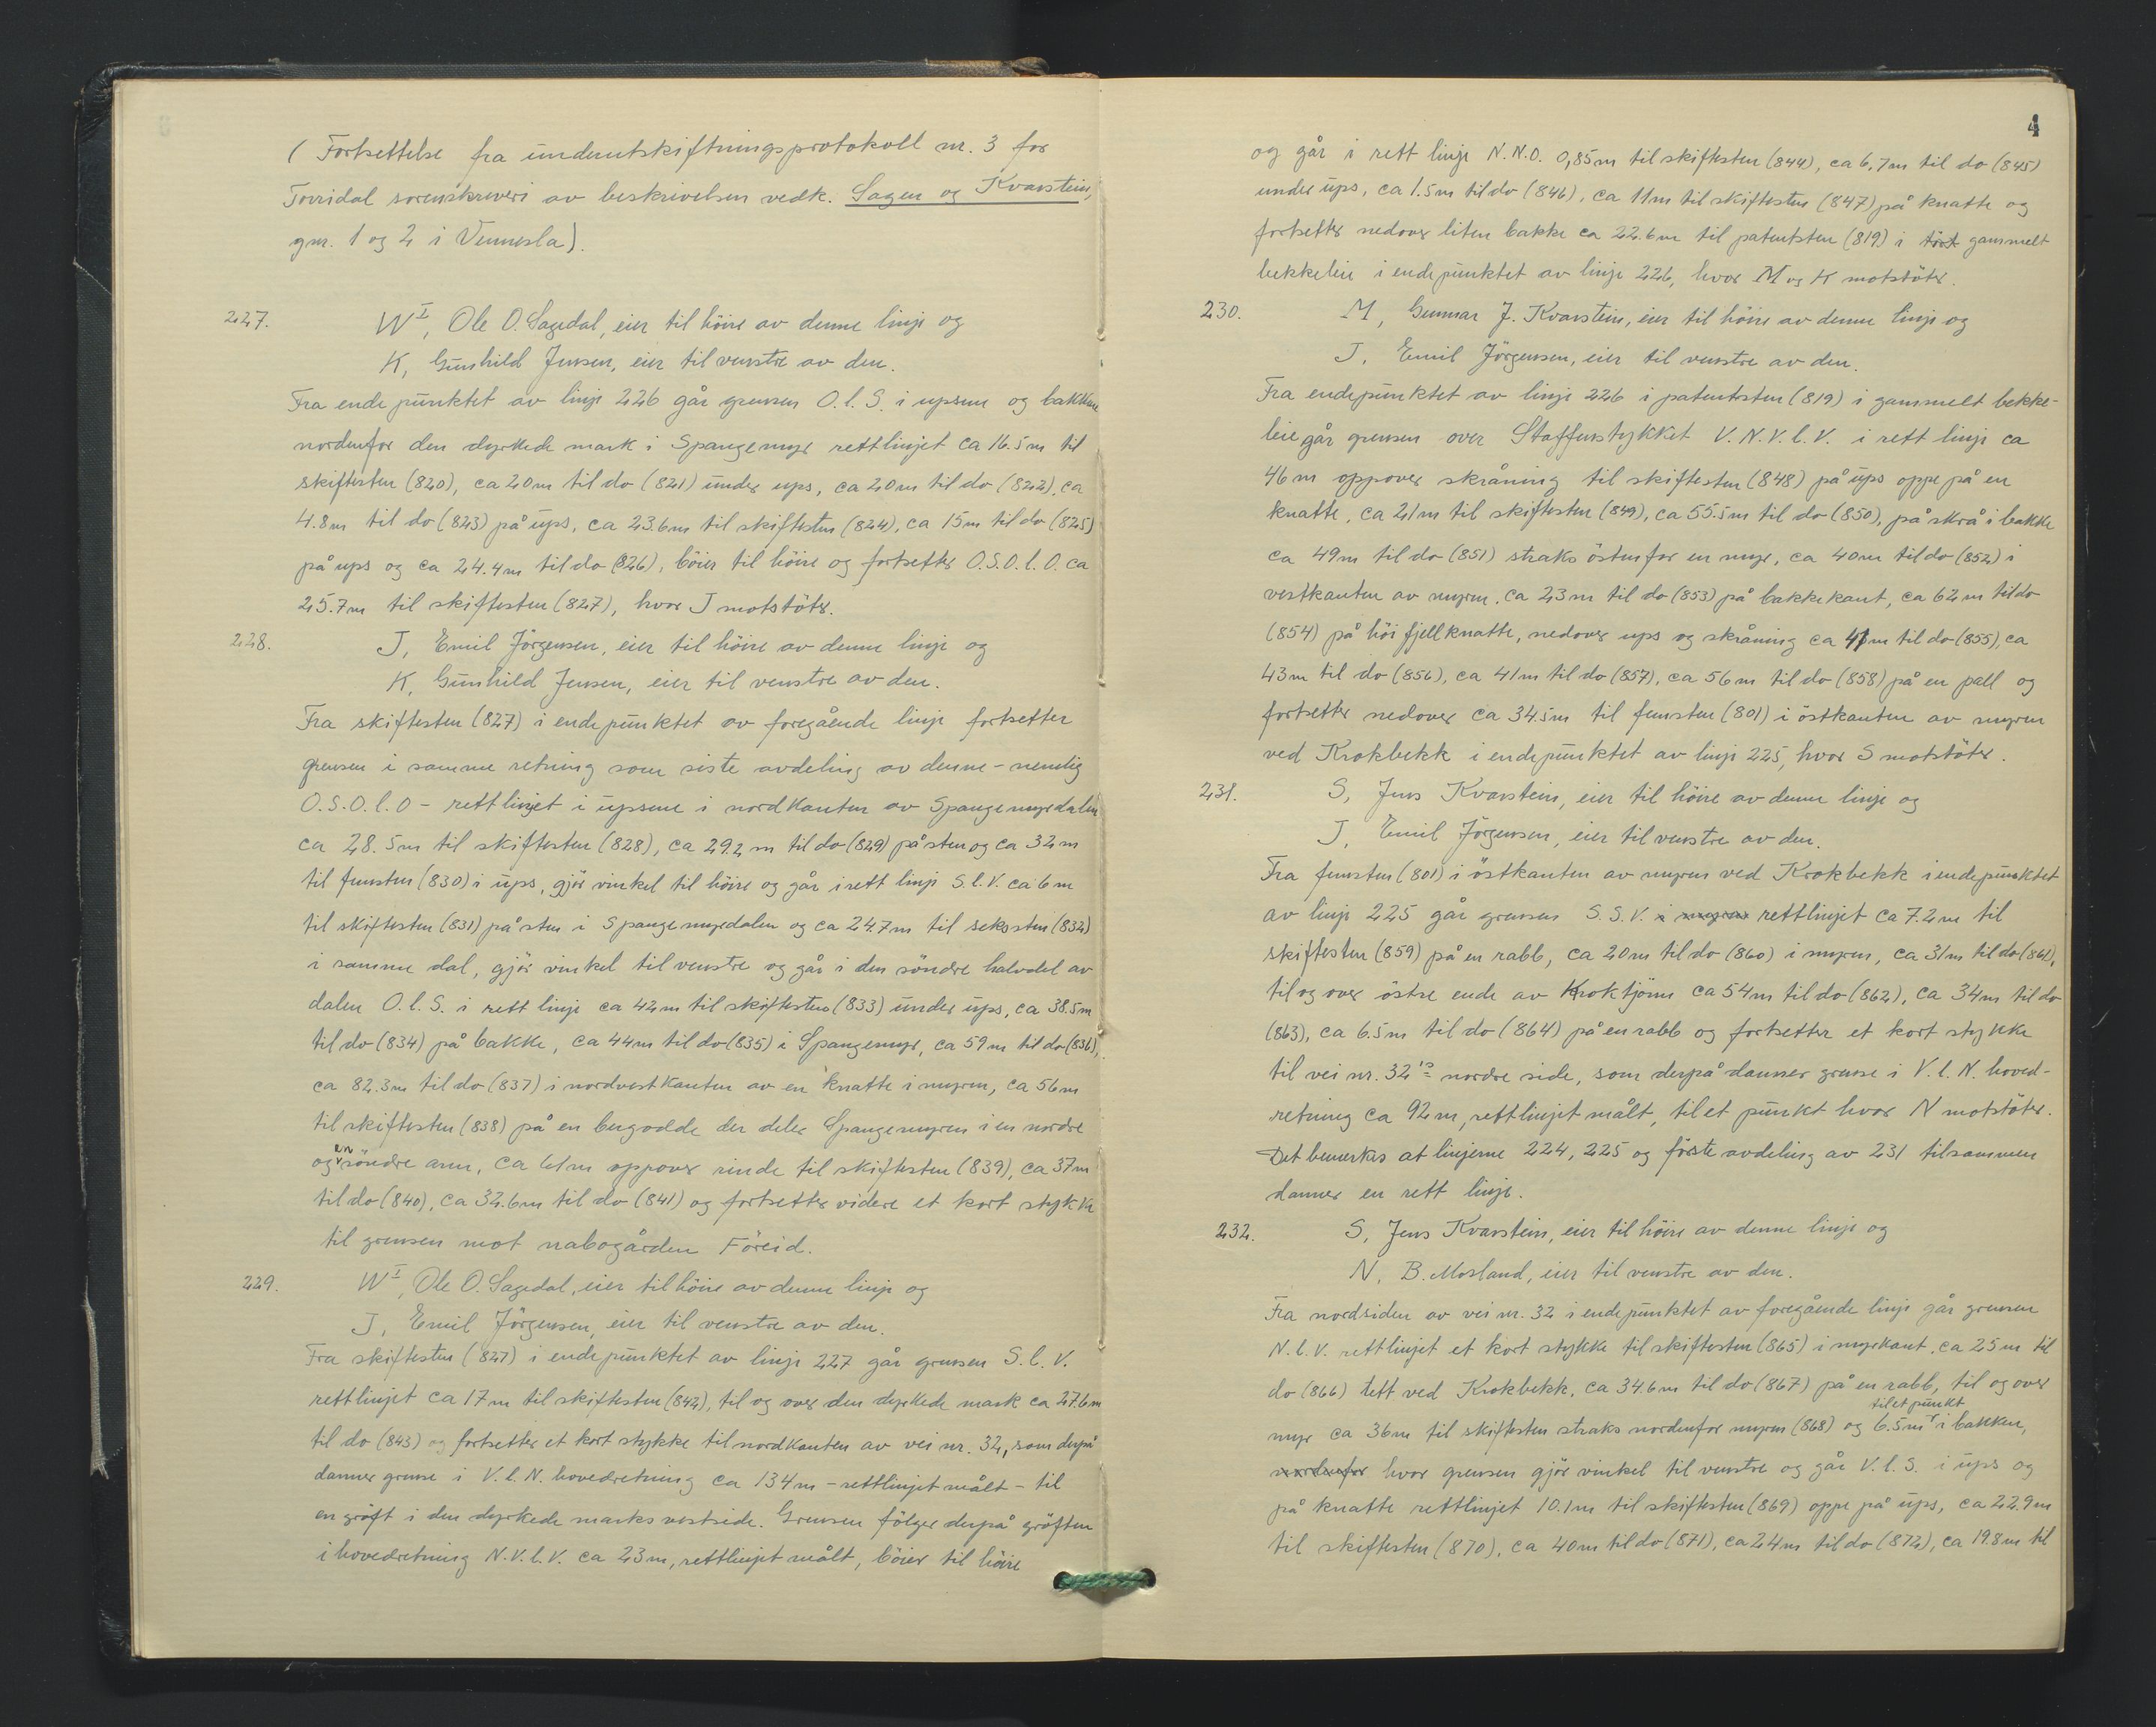 ( Fortsettelse fra underutskiftningsprotokoll nr. 3 for
Torridal sorenskriveri av beskrivelsen vedk. Sagen og Kvarstein,
gnr. 1 og 2 i Vennesla).
227. W I, Ole O. Sagedal, eier til höire av denne linje og
K, Gunhild Jensen, eier til venstre av den.
Fra endepunktet av linje 226 går grensen O.l.S. i upsene og bakkene
nordenfor den dyrkede mark i Spangemyr rettlinjet ca 16.5m til
skiftesten (820), ca 20m til do (821) under ups, ca 20m til do (822), ca
4.8m til do (823) på ups, ca 23.6m til skiftesten (824), ca 15m til do (825)
på ups og ca 24.4m til do (826), böier til höire og fortsetter O.S.O.l.O. ca
25.7m til skiftesten (827), hvor J motstöter.
228. J, Emil Jörgensen, eier til höire av denne linje og
K, Gunhild Jensen, eier til venstre av den.
Fra skiftesten (827) i endepunktet av foregående linje fortsetter
grensen i samme retning som siste avdeling av denne - nemlig
O.S.O.l.O - rettlinjet i upsene i nordkanten av Spangemyrdalen
ca 28.5m til skiftesten (828), ca 29.2m til do (829) på sten og ca 32m
til femsten (830) i ups, gjör vinkel til höire og går i rett linje S.l.V. ca 6m
til skiftesten (831) på sten i Spangemyrdalen og ca 24.7m til seksten (832)
i samme dal, gjör vinkel til venstre og går i den söndre halvdel av
dalen O.l.S. i rett linje ca 42m til skiftesten (833) under ups, ca 38.5m
til do (834) på bakke, ca 44m til do (835) i Spangemyr, ca 59m til do (836),
ca 82.3m til do (837) i nordvestkanten av en knatte i myren, ca 56m
til skiftesten (838) på en bergodde der deler Spangemyren i en nordre
og en söndre arm, ca 61m oppover rinde til skiftesten (839), ca 37m
til do (840), ca 32.6m til do (841) og fortsetter videre et kort stykke
til grensen mot nabogården Föreid.
229. W I, Ole O. Sagedal, eier til höire av denne linje og
J, Emil Jörgensen, eier til venstre av den.
Fra skiftesten (827) i endepunktet av linje 227 går grensen S.l.V.
rettlinjet ca 17m til skiftesten (842), til og over den dyrkede mark ca 27.6m
til do (843) og fortsetter et kort stykke til nordkanten av vei nr. 32, som derpå
danner grense i V.l.N. hovedretning ca 134m - rettlinjet målt - til
en gröft i den dyrkede marks vestside. Grensen fölger derpå gröften
i hovedretning N.V.l.V. ca 23m, rettlinjet målt, böier til höire
4
og går i rett linje N.N.O. 0,85m til skiftesten (844), ca 6,7m til do (845)
under ups, ca 1.5m til do (846), ca 11m til skiftesten (847) på knatte og
fortsetter nedover liten bakke ca 22.6m til patentsten (819) i tört gammelt
bekkeleie i endepunktet av linje 226, hvor M og K motstöter.
230. M, Gunnar J. Kvarstein, eier til höire av denne linje og
J, Emil Jörgensen, eier til venstre av den.
Fra endepunktet av linje 226 i patentsten (819) i gammelt bekke-
leie går grensen over Staffenstykket V.N.V.l.V. i rett linje ca
46m oppover skråning til skiftesten (848) på ups oppe på en
knatte, ca 21m til skiftesten (849), ca 55.5m til do (850), på skrå i bakke
ca 49m til do (851) straks östenfor en myr, ca 40m til do (852) i
vestkanten av myren, ca 23m til do (853) på bakkekant, ca 62m til do
(854) på höi fjellknatte, nedover ups og skråning ca 41m til do (855), ca
43m til do (856), ca 41m til do (857), ca 56m til do (858) på en pall og
fortsetter nedover ca 34.5m til femsten (801) i östkanten av myren
ved Krokbekk i endepunktet av linje 225, hvor S motstöter.
231. S, Jens Kvarstein, eier til höire av denne linje og
J, Emil Jörgensen, eier til venstre av den.
Fra femsten (801) i östkanten av myren ved Krokbekk i endepunktet
av linje 225 går grensen S.S.V. i myren rettlinjet ca 7.2m til
skiftesten (859) på en rabb, ca 20m til do (860) i myren, ca 31m til do (861),
til og over östre ende av Kroktjönn ca 54m til do (862), ca 34m til do
(863), ca 6.5m til do (864) på en rabb og fortsetter et kort stykke
til vei nr. 32's nordre side, som derpå danner grense i V.l.N. hoved-
retning ca 92m, rettlinjet målt, til et punkt hvor N motstöter.
Det bemerkes at linjerne 224, 225 og förste avdeling av 231 tilsammen
danner en rett linje.
232. S, Jens Kvarstein, eier til höire av denne linje og
N, B. Mosland, eier til venstre av den.
Fra nordsiden av vei nr. 32 i endepunktet av foregående linje går grensen
N.l.V. rettlinjet et kort stykke til skiftesten (865) i myrkant, ca 25m til
do (866) tett ved Krokbekk, ca 34.6m til do (867) på en rabb, til og over
myr ca 36m til skiftesten straks nordenfor myren (868) og 6.5m til et punkt i bakken,
nordenfor hvor grensen gjör vinkel til venstre og går V.l.S. i ups og
på knatte rettlinjet 10.1m til skiftesten (869) oppe på ups, ca 22.9m
til skiftesten (870), ca 40m til do (871), ca 24m til do (872), ca 19.8m til